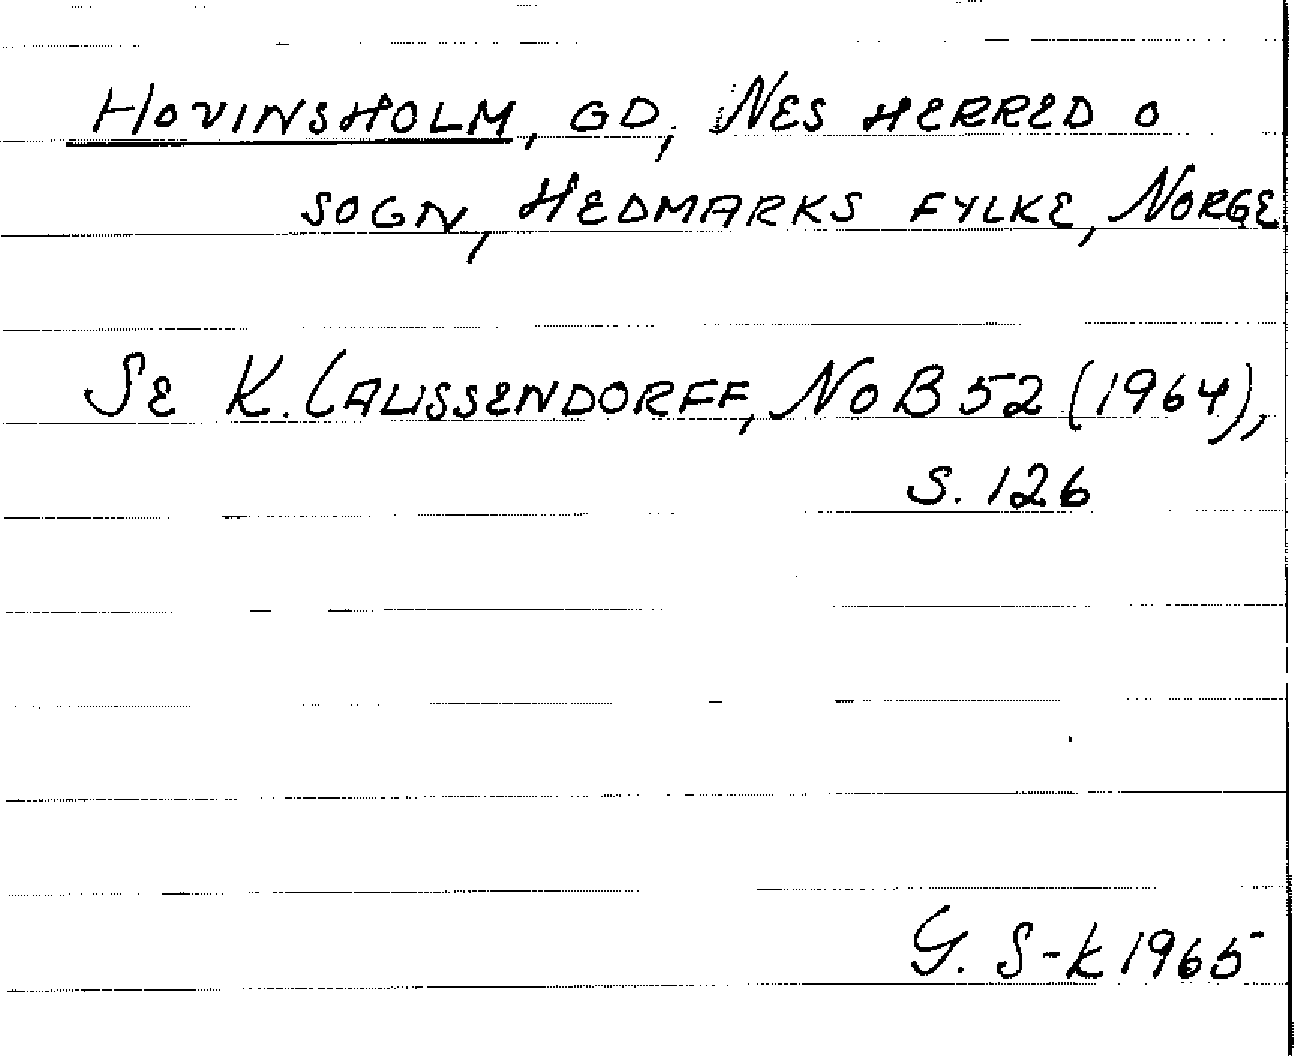 HOVINSHOLM, GD, NES HERRED O
SOGN, HEDMARKS FYLKE, NORGE
SE K. CAUSSENDORFF, NoB 52 (1964),
S. 126
G. S-K 1965